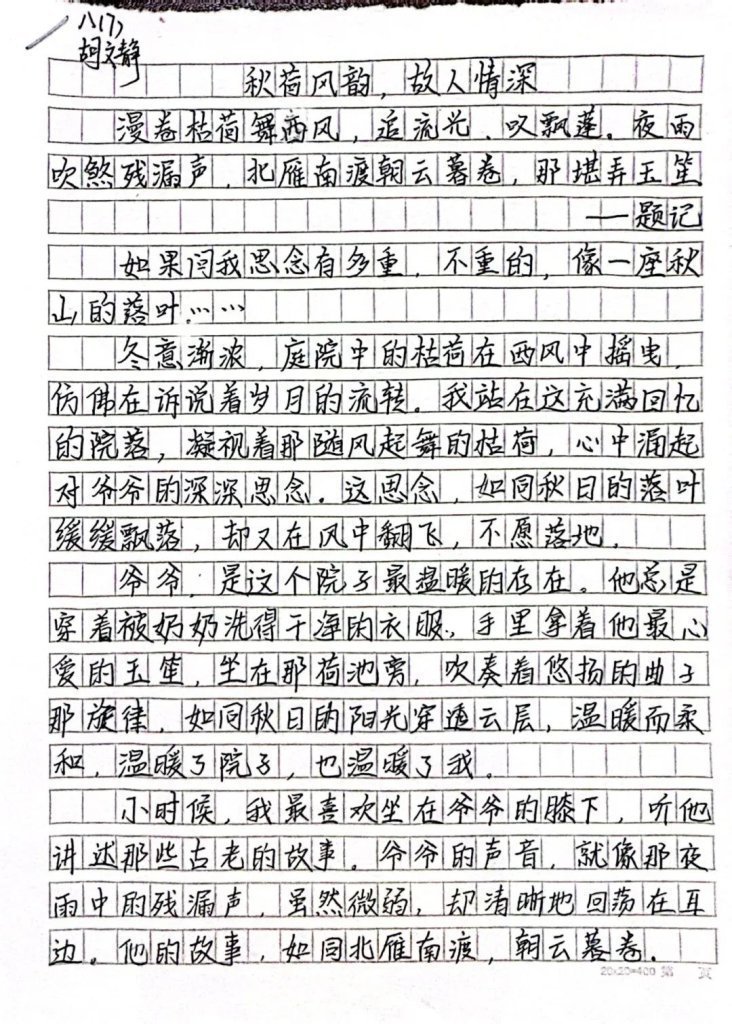 八(7)
胡文静
秋荷风韵，故人情深
漫卷枯荷舞西风，追流光、叹飘蓬。夜雨
吹煞残漏声，北雁南渡朝云暮卷，那堪弄玉笙
——题记
如果问我思念有多重，不重的，像一座秋
山的落叶……
冬意渐浓，庭院中的枯荷在西风中摇曳，
仿佛在诉说着岁月的流转。我站在这充满回忆
的院落，凝视着那随风起舞的枯荷，心中涌起
对爷爷的深深思念。这思念，如同秋日的落叶
缓缓飘落，却又在风中翻飞，不愿落地。
爷爷，是这个院子最温暖的存在。他总是
穿着被奶奶洗得干净的衣服，手里拿着他最心
爱的玉笙，坐在那荷池旁，吹奏着悠扬的曲子
那旋律，如同秋日的阳光穿透云层，温暖而柔
和，温暖了院子，也温暖了我。
小时候，我最喜欢坐在爷爷的膝下，听他
讲述那些古老的故事。爷爷的声音，就像那夜
雨中的残漏声，虽然微弱，却清晰地回荡在耳
边。他的故事，如同北雁南渡，朝云暮卷。
20×20=400 第 页